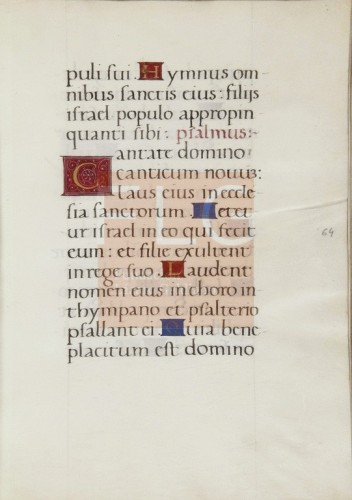 puli sui. Hymnus om
nibus sanctis eius: filijs
israel populo appropin
quanti sibi: psalmus:
Cantate domino
canticum nouuz:
laus eius in eccle
sia sanctorum. Letet
ur israel in eo qui fecit
eum: et filie exultent
in rege suo. Laudent
nomen eius in choro in
thympano et psalterio
psallant ei. Quia bene
placitum est domino
64